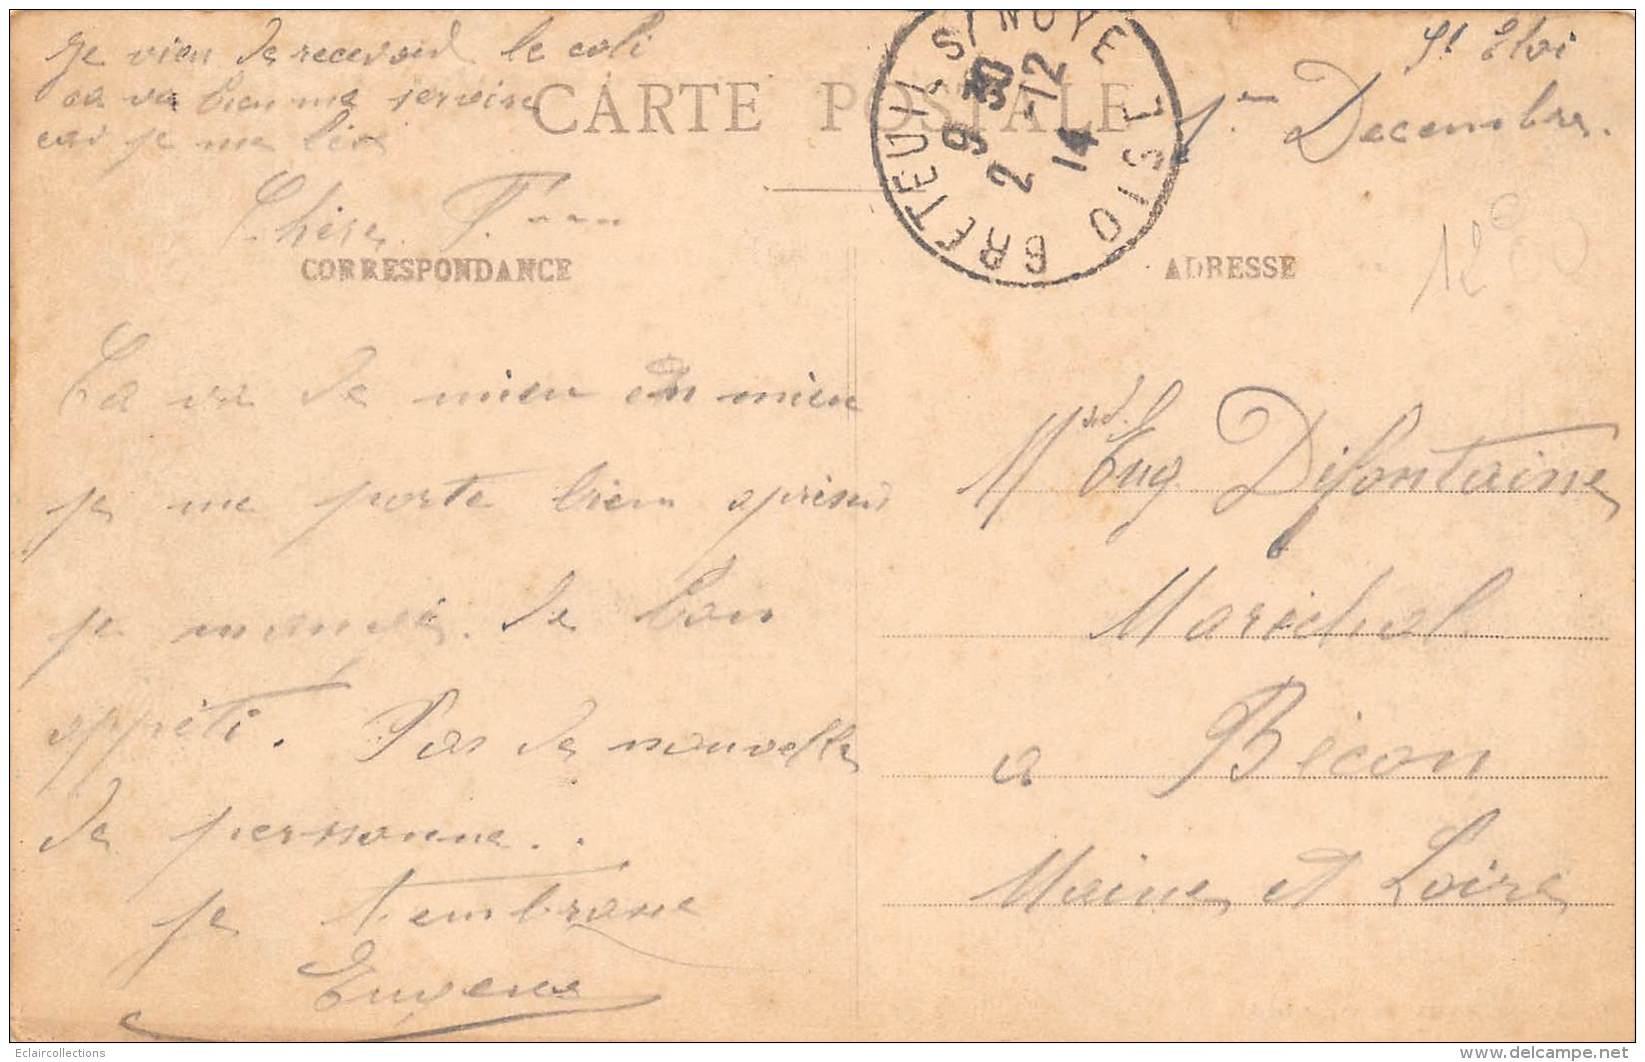 Je vien de recevoir le coli
ça va bien me servire
car je me lève
St Eloi
CARTE POSTALE
1er Decembre.
BRETEUIL S/ NOYE
9 30
2 -12
14
OISE
Chère F.
CORRESPONDANCE
ADRESSE
12
Ca va de mieu en mieu
je me porte bien à présent
je mange de bon
appéti. Pas de nouvelle
de personne..
je t'embrasse
Eugène
Mad. Eug Difontaine
Maréchal
a Bécon
Maine et Loire
Eclaircollections
www.delcampe.net